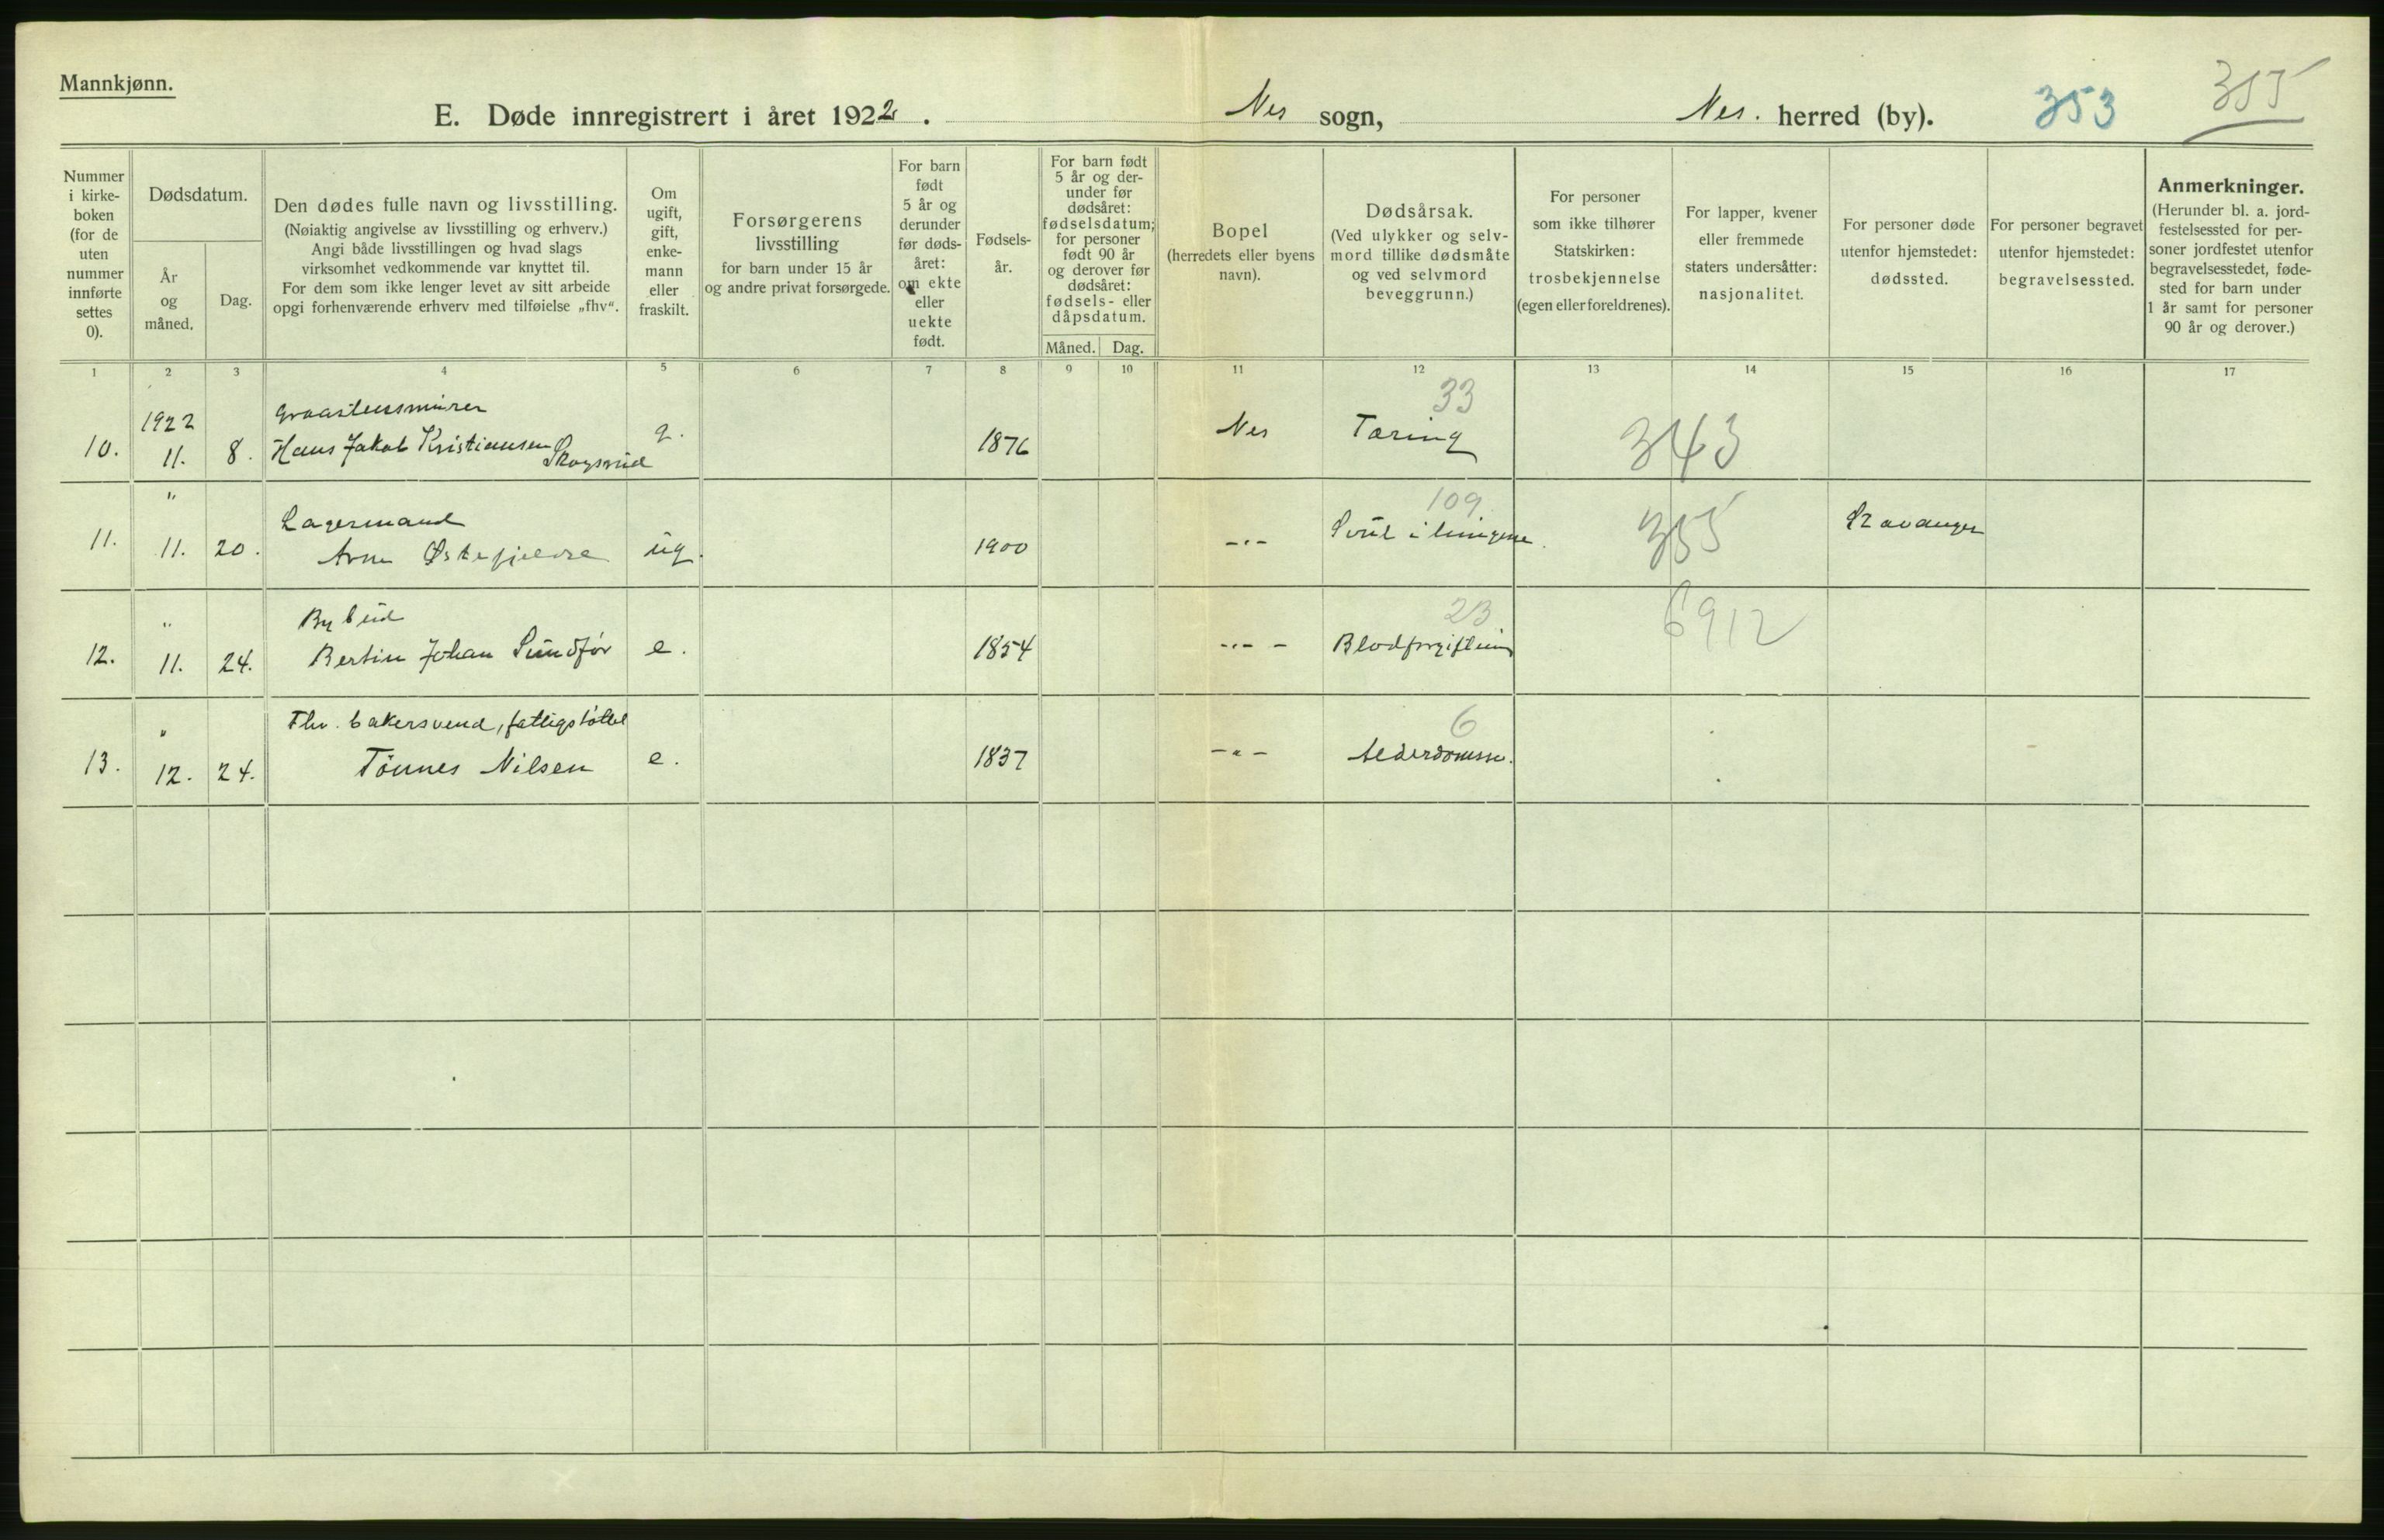 Mannkjønn.
E. Døde innregistrert i året 1922. Nes sogn, Nes. herred (by). 353 355
Nummer i kirke- boken (for de uten nummer innførte settes 0).
Dødsdatum.
År og måned.
Dag.
Den dødes fulle navn og livsstilling.
(Nøiaktig angivelse av livsstilling og erhverv.)
Angi både livsstillingen og hvad slags
virksomhet vedkommende var knyttet til.
For dem som ikke lenger levet av sitt arbeide
opgi forhenværende erhverv med tilføielse „fhv“.
Om ugift, gift, enke- mann eller fraskilt.
Forsørgerens
livsstilling
for barn under 15 år
og andre privat forsørgede.
For barn født 5 år og derunder før døds- året: om ekte eller uekte født.
Fødsels- år.
For barn født 5 år og der- under før dødsåret: fødselsdatum; for personer født 90 år og derover før dødsåret: fødsels- eller dåpsdatum.
Måned. Dag.
Bopel
(herredets eller byens
navn).
Dødsårsak.
(Ved ulykker og selv-
mord tillike dødsmåte
og ved selvmord
beveggrunn.)
For personer
som ikke tilhører
Statskirken:
trosbekjennelse
(egen eller foreldrenes).
For lapper, kvener
eller fremmede
staters undersåtter:
nasjonalitet.
For personer døde
utenfor hjemstedet:
dødssted.
For personer begravet
utenfor hjemstedet:
begravelsessted.
Anmerkninger.
(Herunder bl. a. jord-
festelsessted for per-
soner jordfestet utenfor
begravelsesstedet, føde-
sted for barn under
1 år samt for personer
90 år og derover.)
1 2 3 4 5 6 7 8 9 10 11 12 13 14 15 16 17
1922 Graastensmurer 33
10. 11. 8. Hans Jakob Kristiansen Skogsrud g. 1876 Nes Tæring 343
" Lagermand 109
11. 11. 20. Arne ug. 1900 -"- Svul i lungene. 355 Stavanger
" Bybud 23 6912
12. 11. 24. Bertin Johan Sundfør e. 1854 -"- Blodforgiftning
" Fhv. bakersvend, fattigstøttet 6
13. 12. 24. Tønnes Nilsen e. 1837 -"- Alderdomssv.